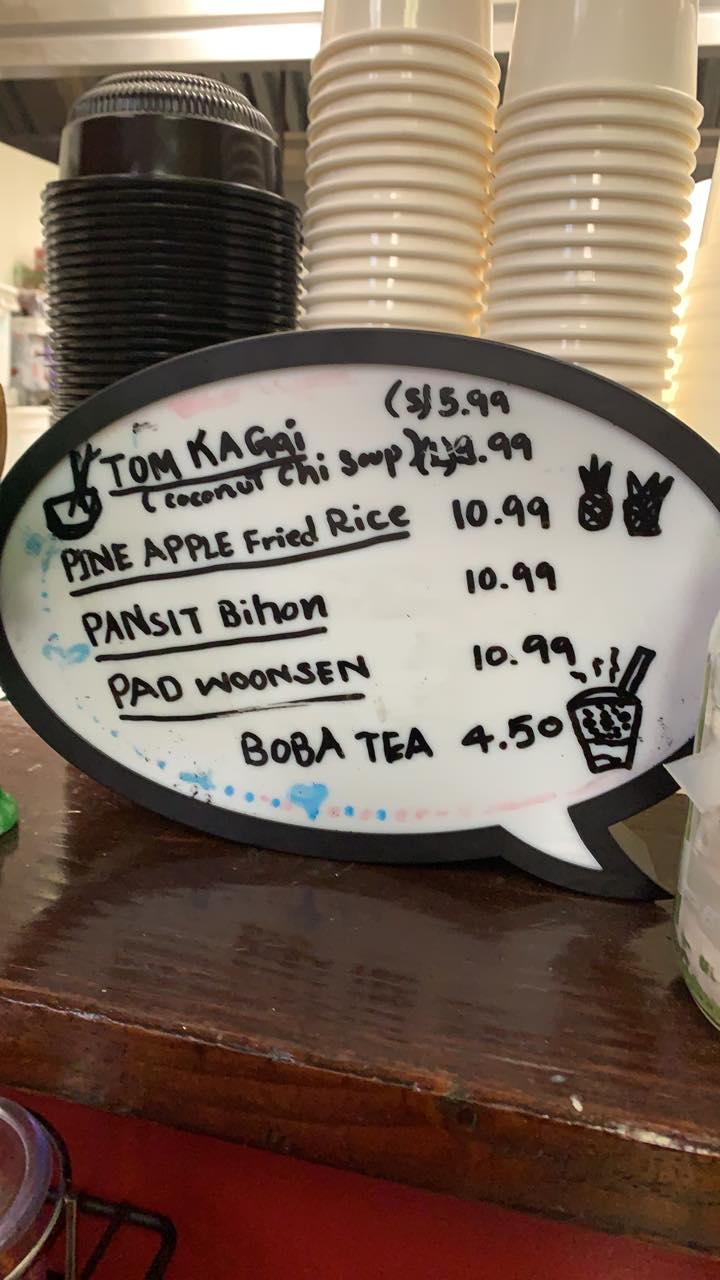 (S) 5.99
TOM KA Gai
(coconut chi soup) .99
PINE APPLE Fried Rice 10.99
PANSIT Bihon 10.99
PAD WOONSEN 10.99
BOBA TEA 4.50